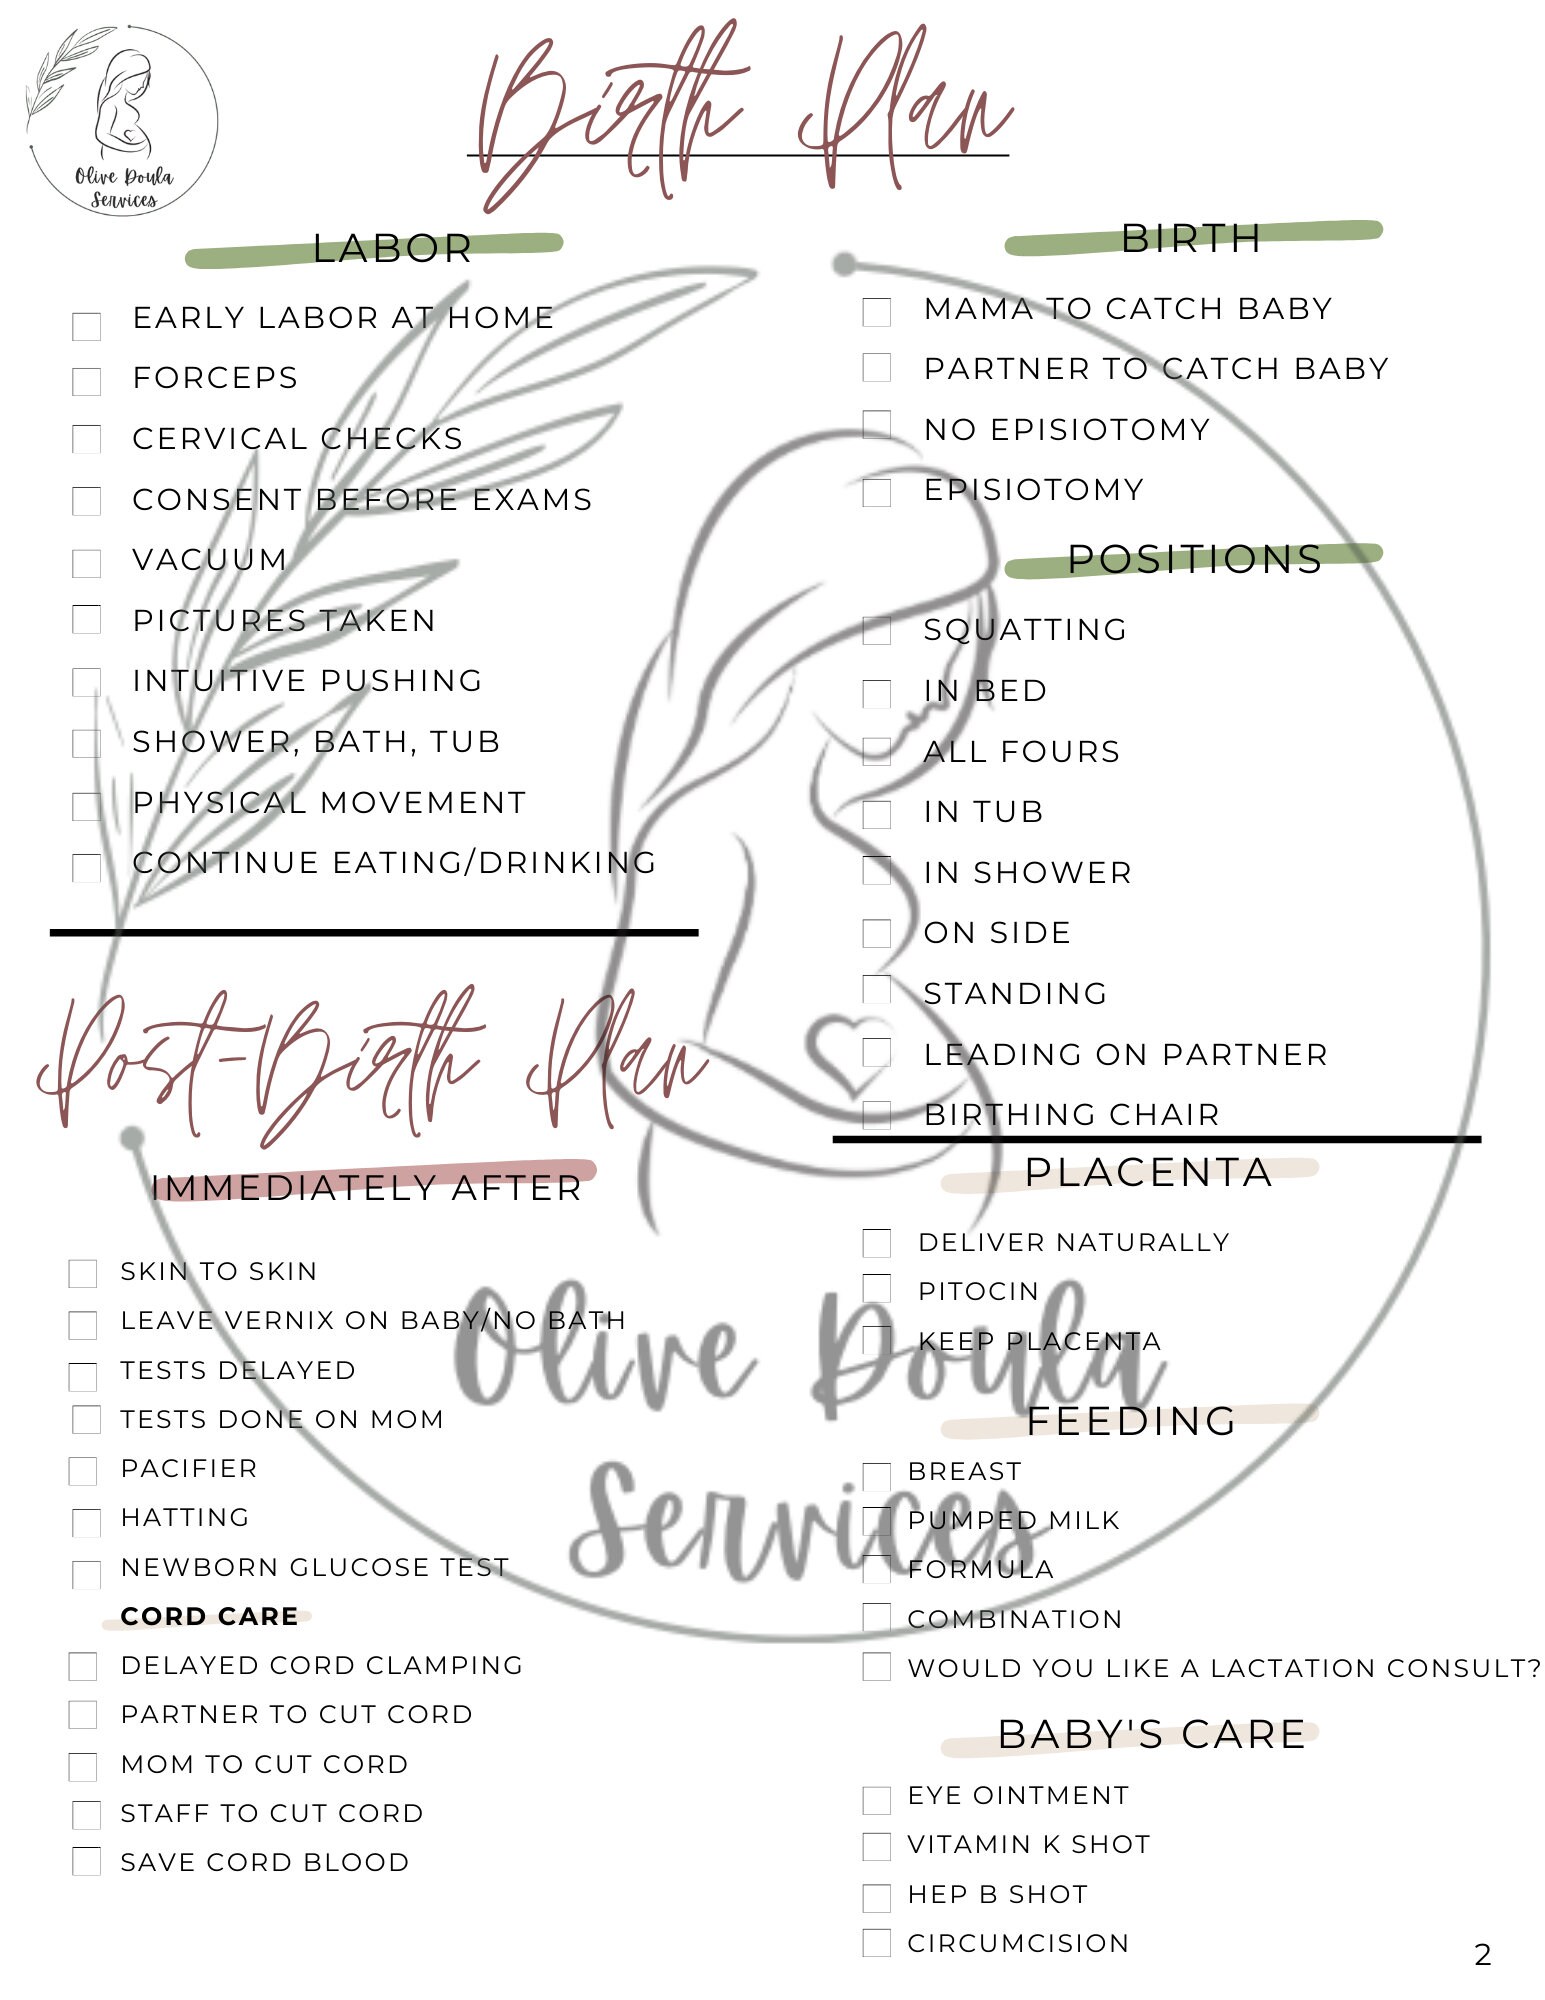 Olive Doula
Services
Birth Plan
LABOR
EARLY LABOR AT HOME
FORCEPS
CERVICAL CHECKS
CONSENT BEFORE EXAMS
VACUUM
PICTURES TAKEN
INTUITIVE PUSHING
SHOWER, BATH, TUB
PHYSICAL MOVEMENT
CONTINUE EATING/DRINKING
BIRTH
MAMA TO CATCH BABY
PARTNER TO CATCH BABY
NO EPISIOTOMY
EPISIOTOMY
POSITIONS
SQUATTING
IN BED
ALL FOURS
IN TUB
IN SHOWER
ON SIDE
STANDING
LEADING ON PARTNER
BIRTHING CHAIR
Post-Birth Plan
IMMEDIATELY AFTER
SKIN TO SKIN
LEAVE VERNIX ON BABY/NO BATH
TESTS DELAYED
TESTS DONE ON MOM
PACIFIER
HATTING
NEWBORN GLUCOSE TEST
CORD CARE
DELAYED CORD CLAMPING
PARTNER TO CUT CORD
MOM TO CUT CORD
STAFF TO CUT CORD
SAVE CORD BLOOD
PLACENTA
DELIVER NATURALLY
PITOCIN
KEEP PLACENTA
FEEDING
BREAST
PUMPED MILK
FORMULA
COMBINATION
WOULD YOU LIKE A LACTATION CONSULT?
BABY'S CARE
EYE OINTMENT
VITAMIN K SHOT
HEP B SHOT
CIRCUMCISION
Olive Doula
Services
2